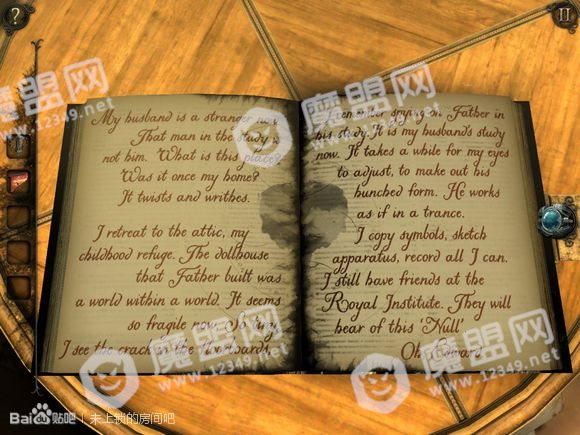 ?
My husband is a stranger now.
That man in the study is
not him. What is this place?
Was it once my home?
It twists and writhes.
I retreat to the attic, my
childhood refuge. The dollhouse
that Father built was
a world within a world. It seems
so fragile now. So tiny.
I see the crack in the floorboards,
remember spying on Father in
his study. It is my husband's study
now. It takes a while for my eyes
to adjust, to make out his
hunched form. He works
as if in a trance.
I copy symbols, sketch
apparatus, record all I can.
I still have friends at the
Royal Institute. They will
hear of this 'Null'
Oh
魔盟网
www.12349.net
魔盟网
www.12349.net
魔盟网
www.12349.net
魔盟网
www.12349.net
Bai贴吧 | 未上锁的房间吧